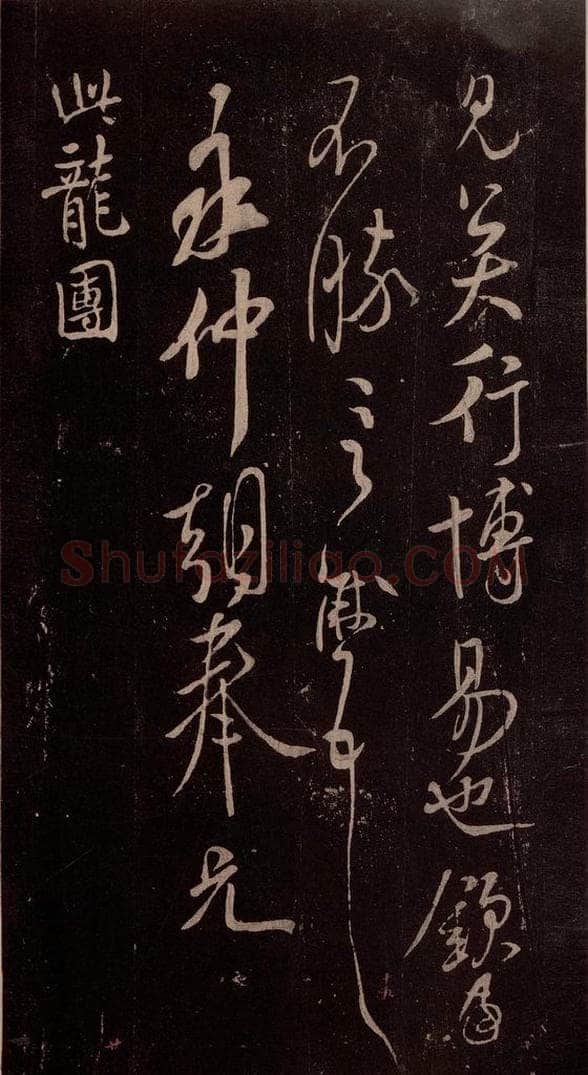 見笑行博易也
不勝
永仲朝奉兄
此龍團
Shufaziliao.COM